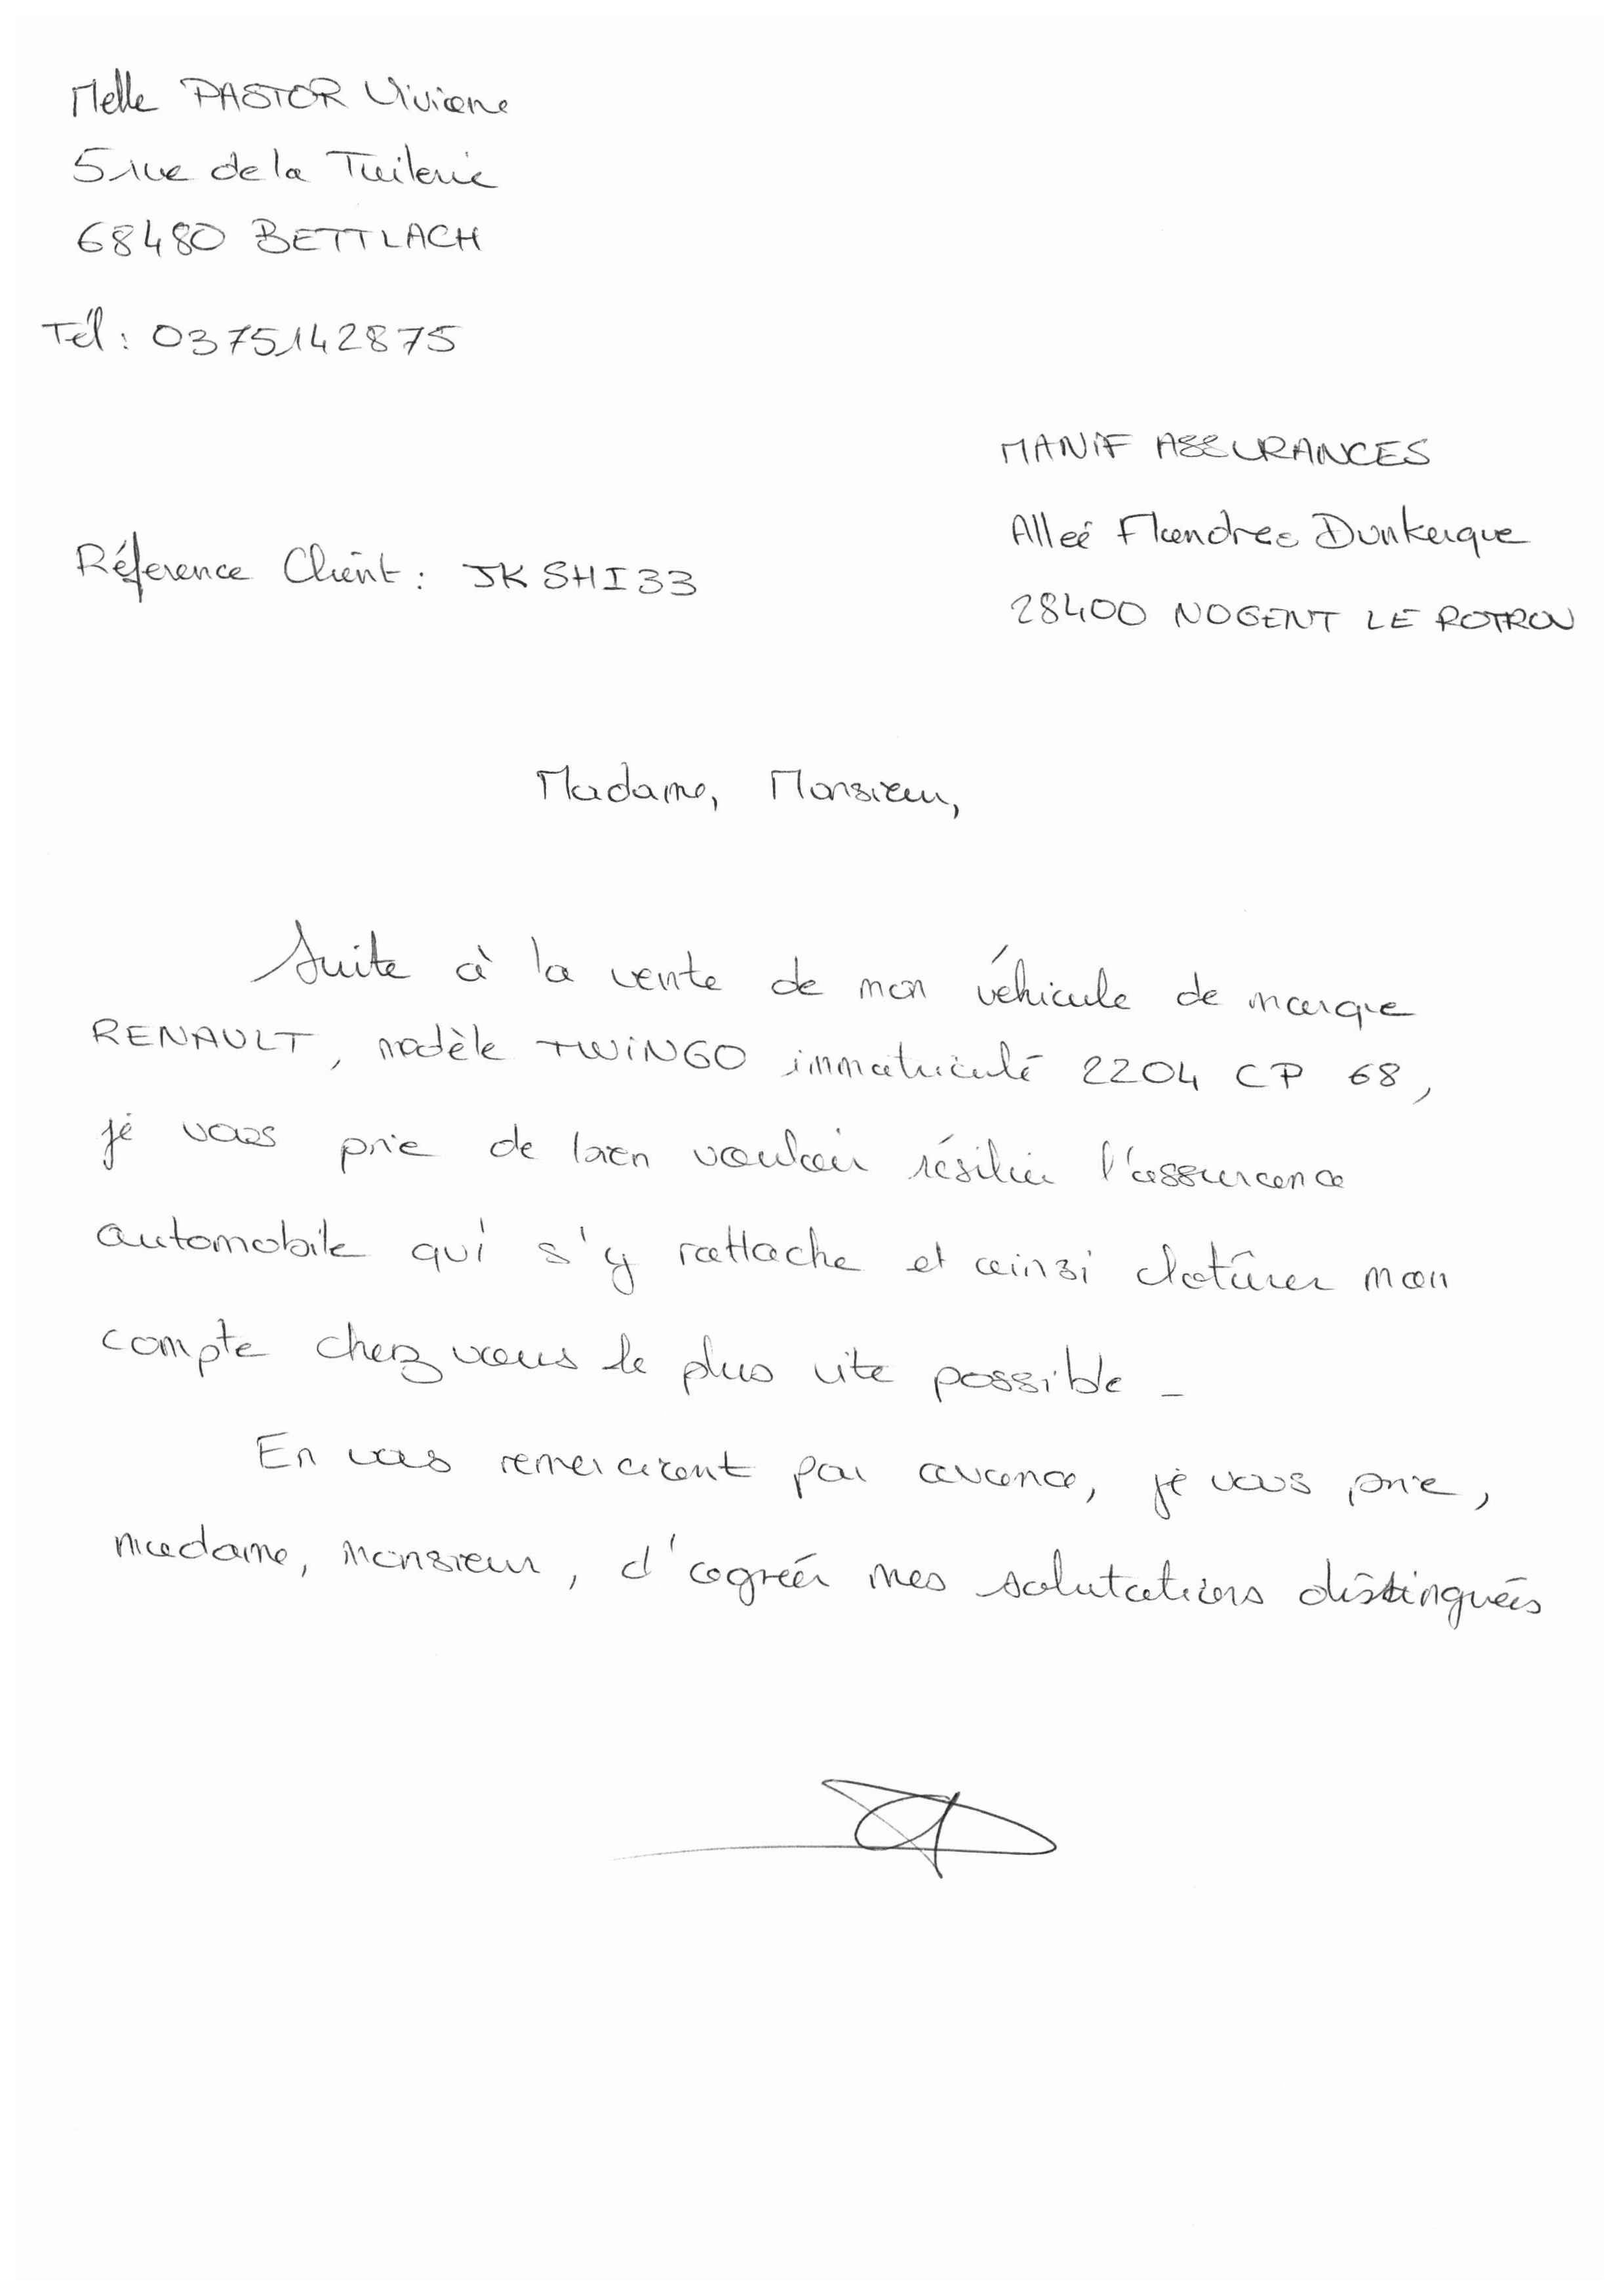 Melle PASTOR Viviane
5 rue de la Tuilerie
68480 BETTLACH
Tél : 0375142875
MANIF ASSURANCES
Alleé Flandres Dunkerque
Réference Client : JKSHI33
28400 NOGENT LE ROTROU
Madame, Monsieur,
Suite à la vente de mon véhicule de marque
RENAULT, modèle TWINGO immatriculé 2204 CP 68,
je vous prie de bien vouloir résilier l'assurance
automobile qui s'y rattache et ainsi clotûrer mon
compte chez vous le plus vite possible -
En vous remerciant par avance, je vous prie,
madame, monsieur, d'agréér mes salutations distinguées